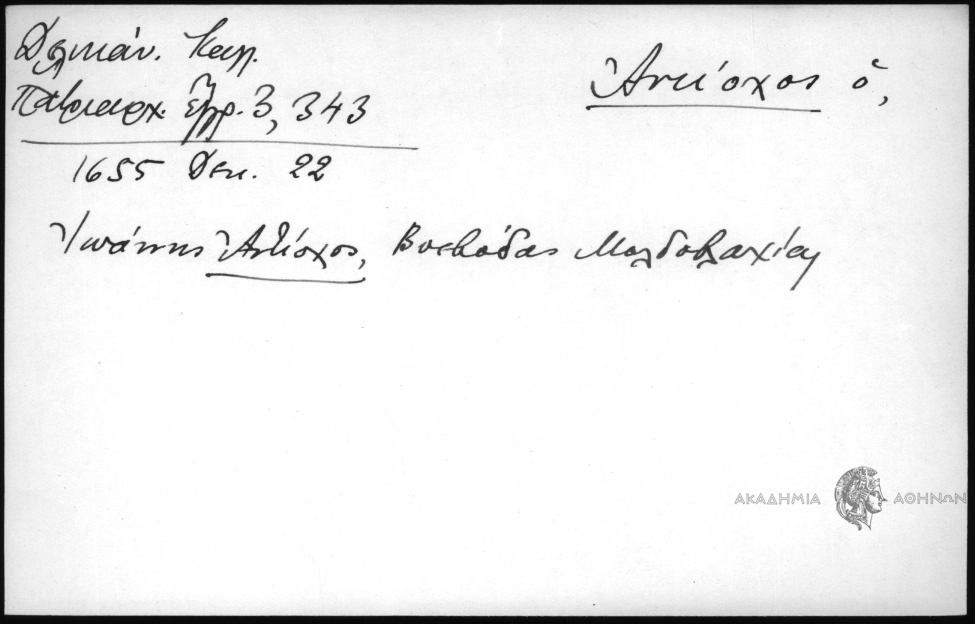 Δελικάν. Καλλ.
Πατριαρχ. ἔγγρ. 3, 343
Ἀντίοχος ὁ,
1655 Δεκ. 22
Ἰωάννης Ἀντίοχος, Βοεβόδας Μολδοβλαχίας
ΑΚΑΔΗΜΙΑ ΑΘΗΝΩΝ